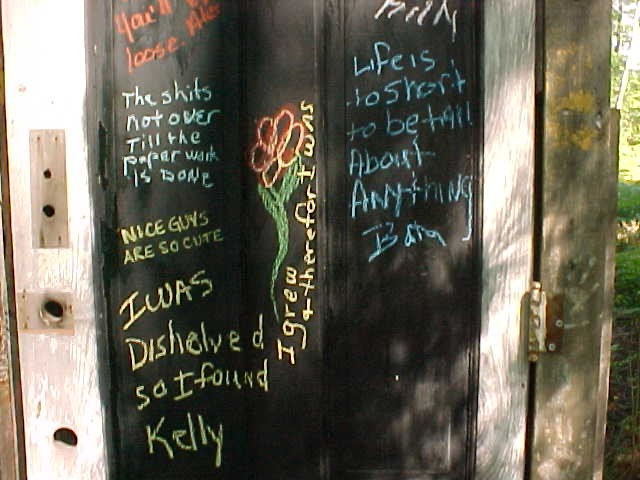 You'll
loose
The shits
not over
Till the
paper work
Is Done
NICE GUYS
ARE SO CUTE
I WAS
Disholved
so I found
Kelly
I grew
& therefor I was
Life is
to short
to be tall
About
Anything